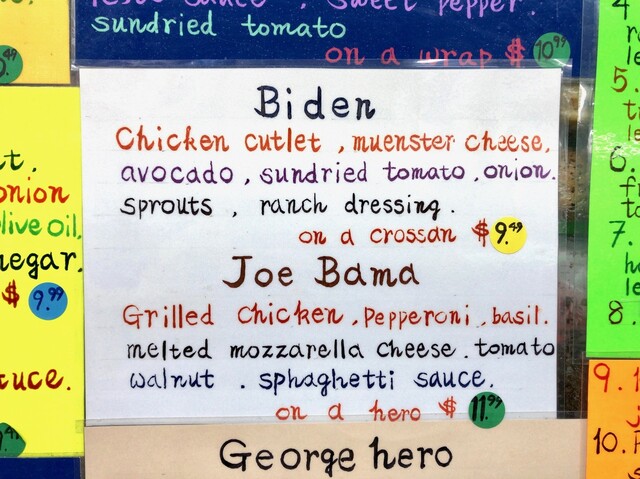 sundried tomato
on a wrap $ 10.99
Biden
Chicken cutlet , muenster cheese.
avocado , sundried tomato , onion.
sprouts , ranch dressing .
on a crossan $ 9.49
Joe Bama
Grilled chicken , Pepperoni , basil.
melted mozzarella cheese . tomato
walnut . sphaghetti sauce.
on a hero $ 11.99
George hero
onion
olive oil,
$ 9.99
5.
6.
7.
8.
9.
10.